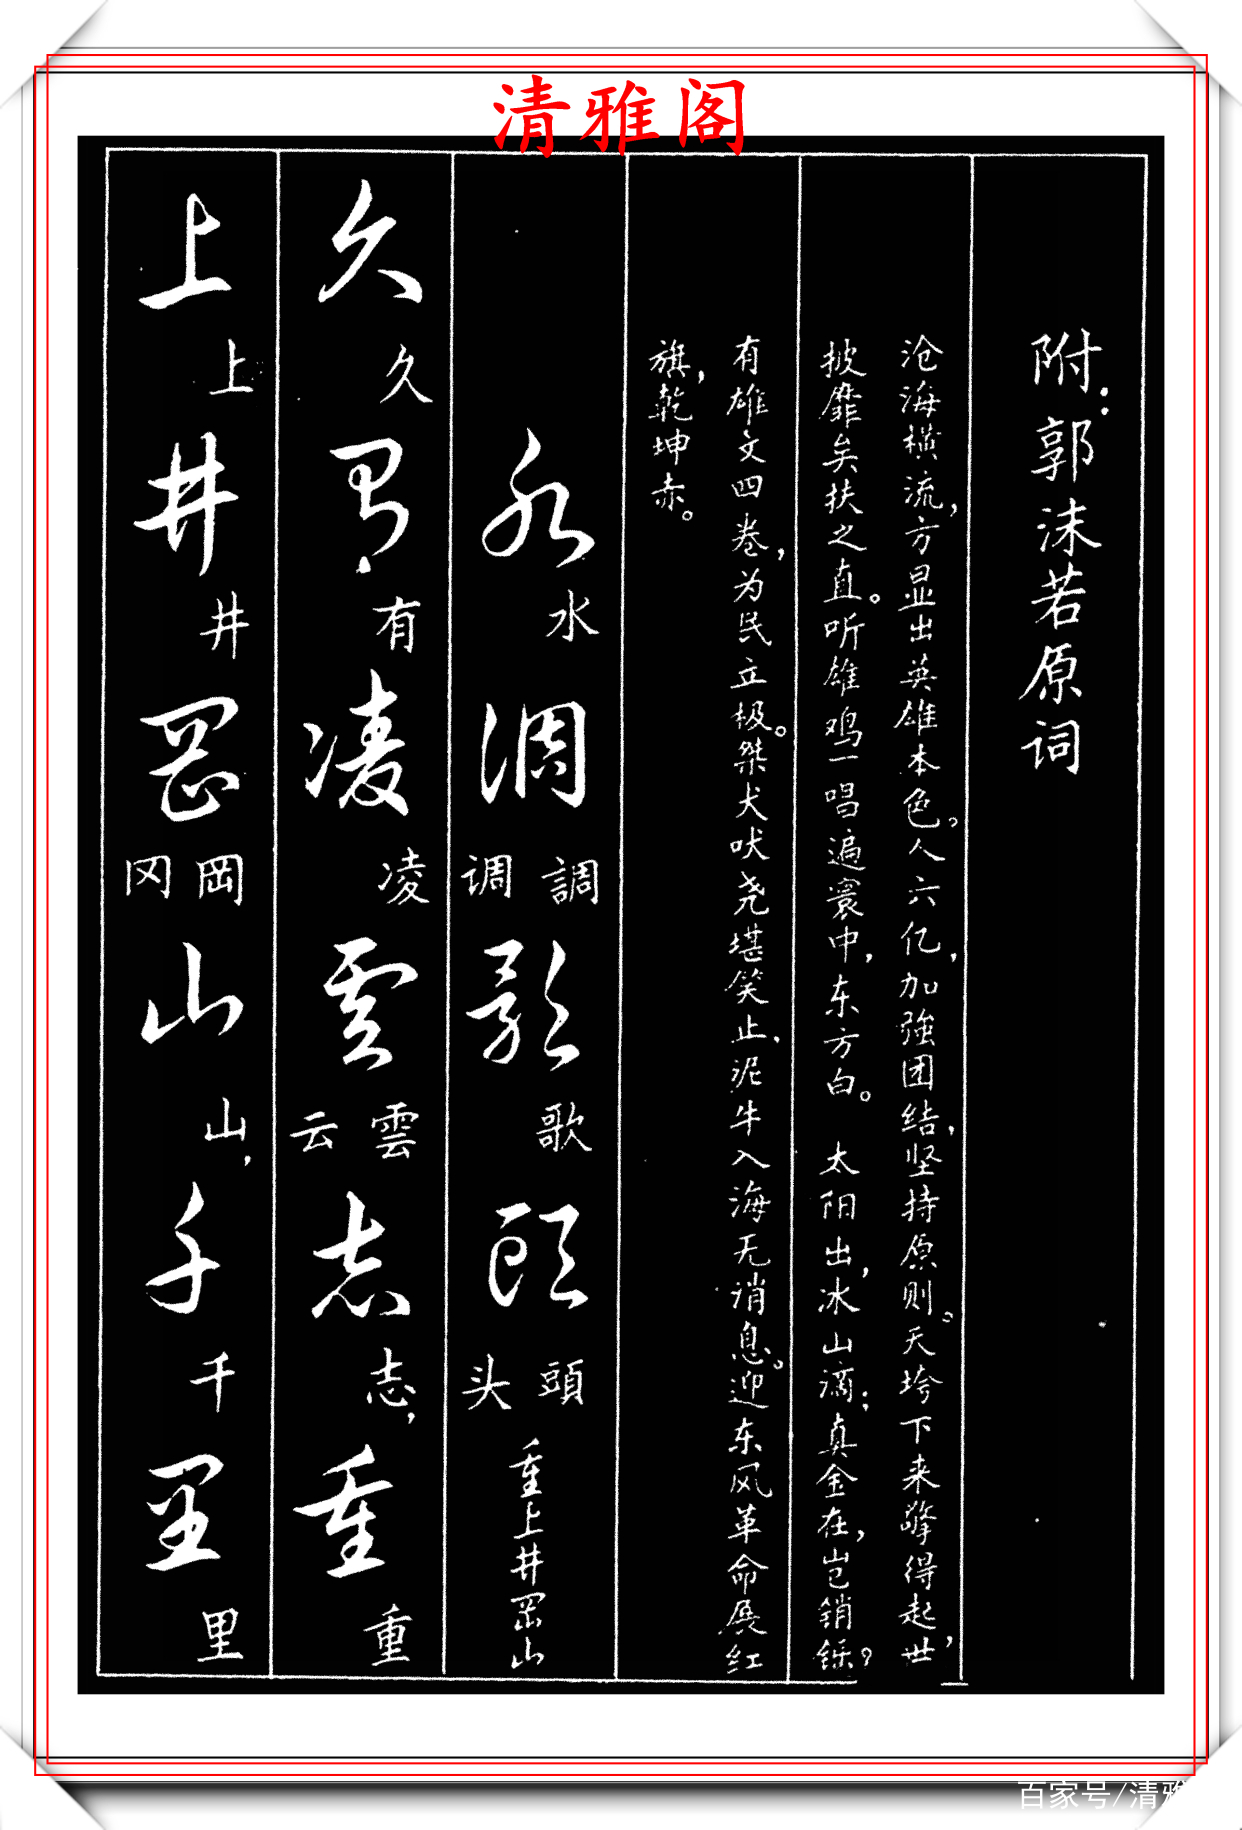 清雅阁
附：郭沫若原词
沧海横流，方显出英雄本色。人六亿，加强团结，坚持原则。天垮下来擎得起，世
披靡矣扶之直。听雄鸡一唱遍寰中，东方白。 太阳出，冰山滴；真金在，岂销铄？
有雄文四卷，为民立极。桀犬吠尧堪笑止，泥牛入海无消息。迎东风革命展红
旗，乾坤赤。
水 水 调 調 调 歌 歌 頭 頭 头 重上井冈山
久 久 有 有 凌 凌 雲 雲 云 志 志， 重 重
上 上 井 井 岡 岡 冈 山 山， 千 千 里 里
百家号/清雅